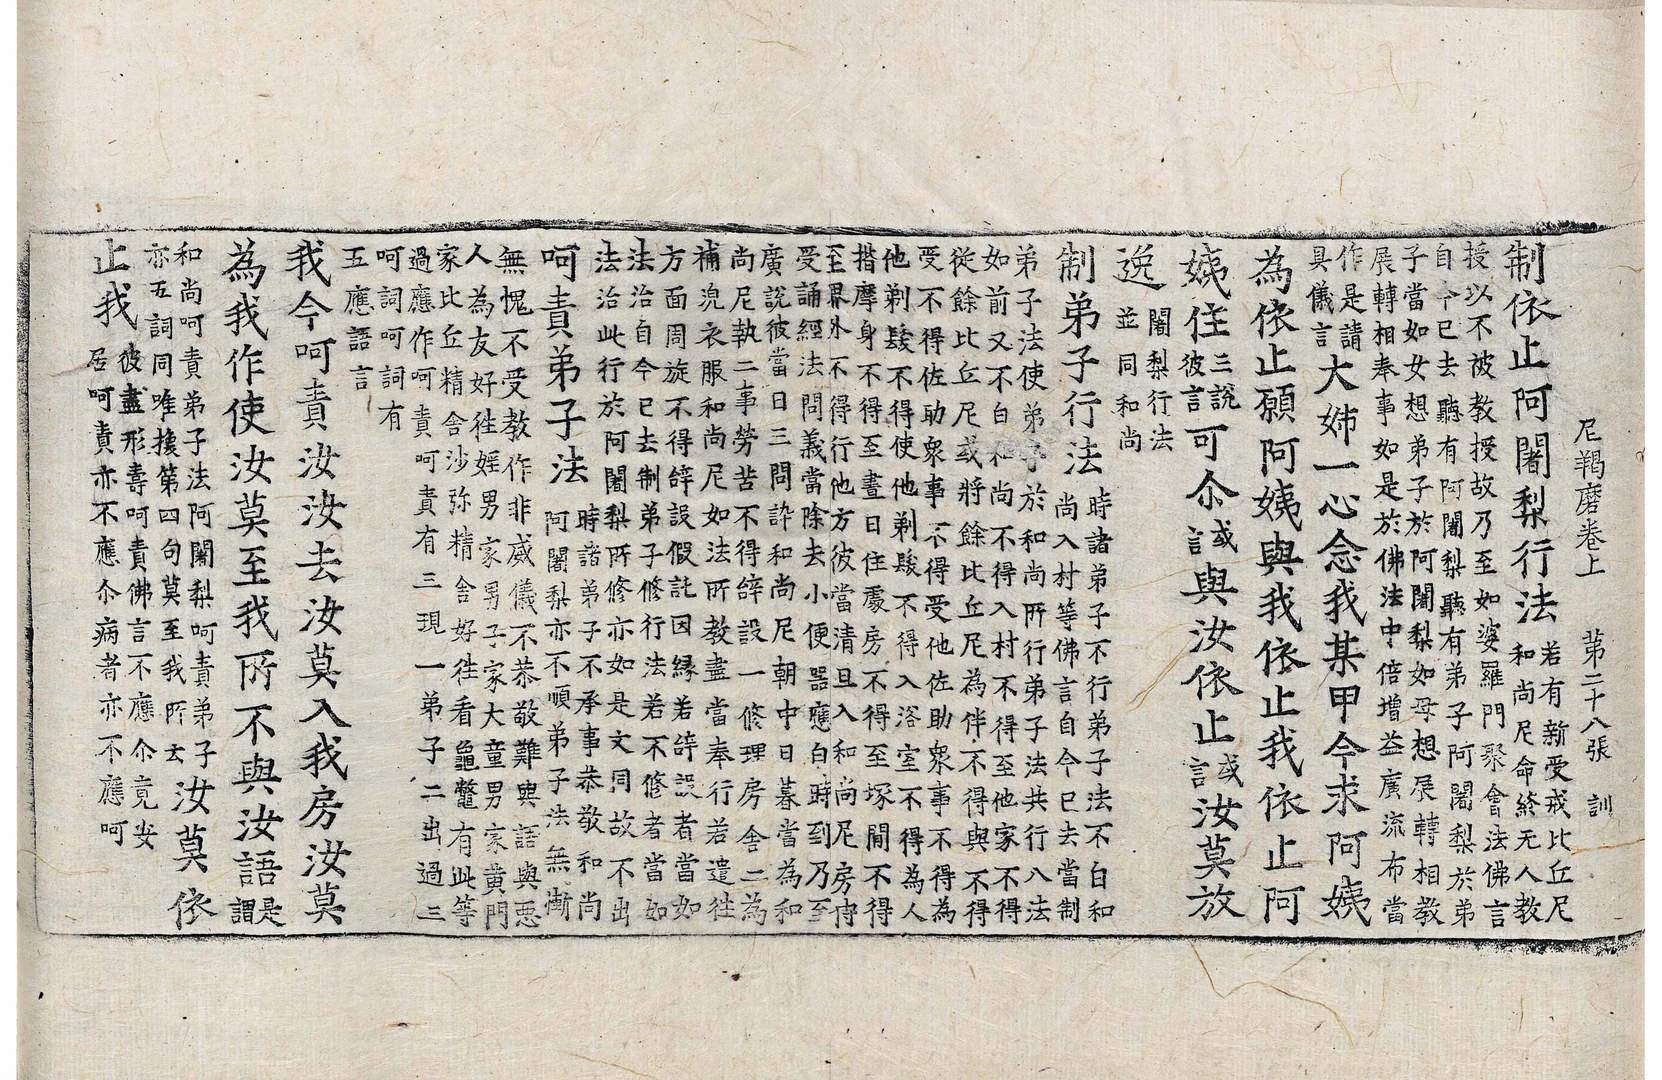 尼羯磨卷上 第二十八張 訓
制依止阿闍梨行法 若有新受戒比丘尼
和尚尼命終无人教
授以不被教授故乃至如婆羅門聚會法佛言
自今已去聽有阿闍梨聽有弟子阿闍梨於弟
子當如女想弟子於阿闍梨如母想展轉相教
展轉相奉事如是於佛法中倍增益廣流布當
作是請
具儀言 大姊一心念我某甲今求阿姨
為依止願阿姨與我依止我依止阿
姨住 三說彼言 可尒 或言 與汝依止 或言 汝莫放
逸 闍梨行法
並同和尚
制弟子行法 時諸弟子不行弟子法不白和
尚入村等佛言自今已去當制
弟子法使弟子於和尚所行弟子法共行八法
如前又不白和尚不得入村不得至他家不得
從餘比丘尼或將餘比丘尼為伴不得與不得
受不得佐助眾事不得受他佐助眾事不得為
他剃髮不得使他剃髮不得入浴室不得為人
揩摩身不得至晝日住處房不得至塚間不得
至界外不得行他方彼當清旦入和尚尼房
受誦經法問義當除去小便器應白時到乃至
廣說彼當日三問訊和尚尼朝中日暮當為和
尚尼執二事勞苦不得辞設一修理房舍二為
補浣衣服和尚尼如法所教盡當奉行若遣往
方面周旋不得辞設假託因緣若辞設者當如
法治自今已去制弟子修行法若不修者當如
法治此行於阿闍梨所修亦如是文同故不出
呵責弟子法 時諸弟子不承事恭敬和尚
阿闍梨亦不順弟子法無慚
無愧不受教作非威儀不恭敬難與語與惡
人為友好往婬男家男子家大童男家黃門
家比丘精舍沙弥精舍好往看龜鼈有此等
過應作呵責呵責有三現一弟子二出過三
呵詞呵詞有
五應語言
我今呵責汝汝去汝莫入我房汝莫
為我作使汝莫至我所不與汝語 是謂
和尚呵責弟子法阿闍梨呵責弟子
亦五詞同唯換第四句莫至我所云 汝莫依
止我 彼盡形壽呵責佛言不應尒竟安
居呵責亦不應尒病者亦不應呵